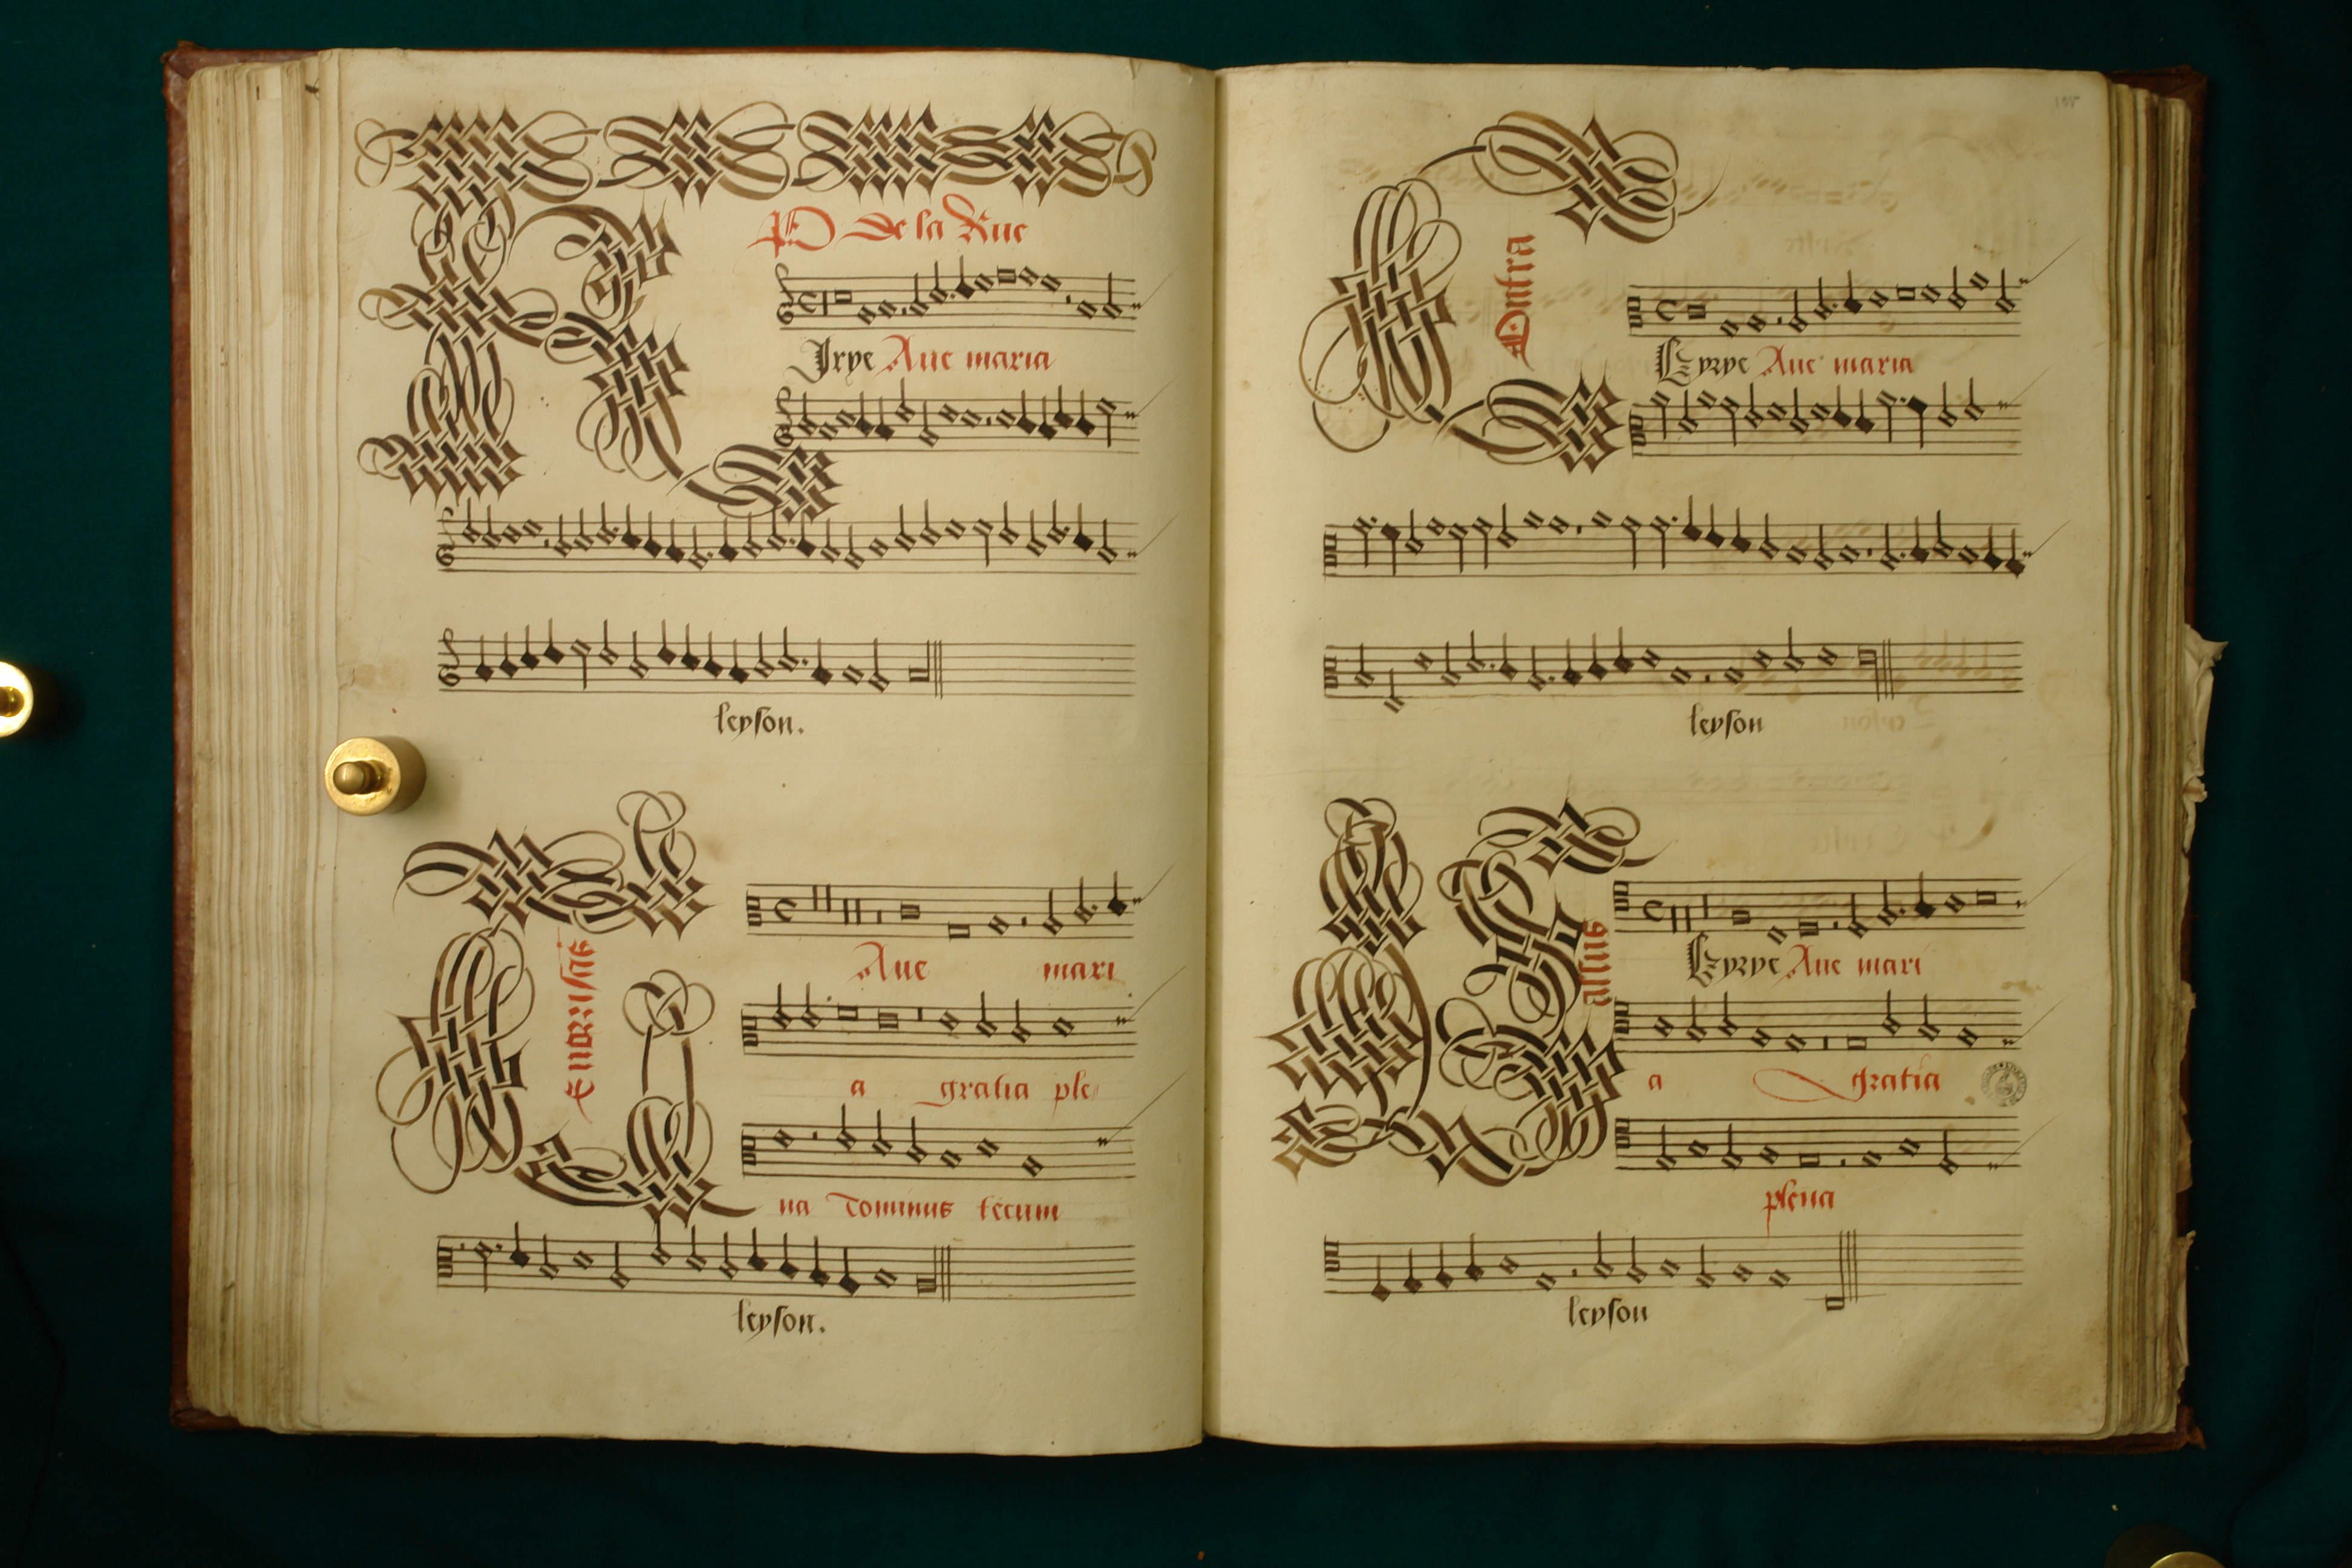 P de la Rue
Kyrye Aue maria
leyson.
Tenor
Aue mari
a gratia ple
na Dominus tecum
leyson.
105
Contra
Kyrye Aue maria
leyson
Bassus
Kyrye Aue mari
a gratia
plena
leyson